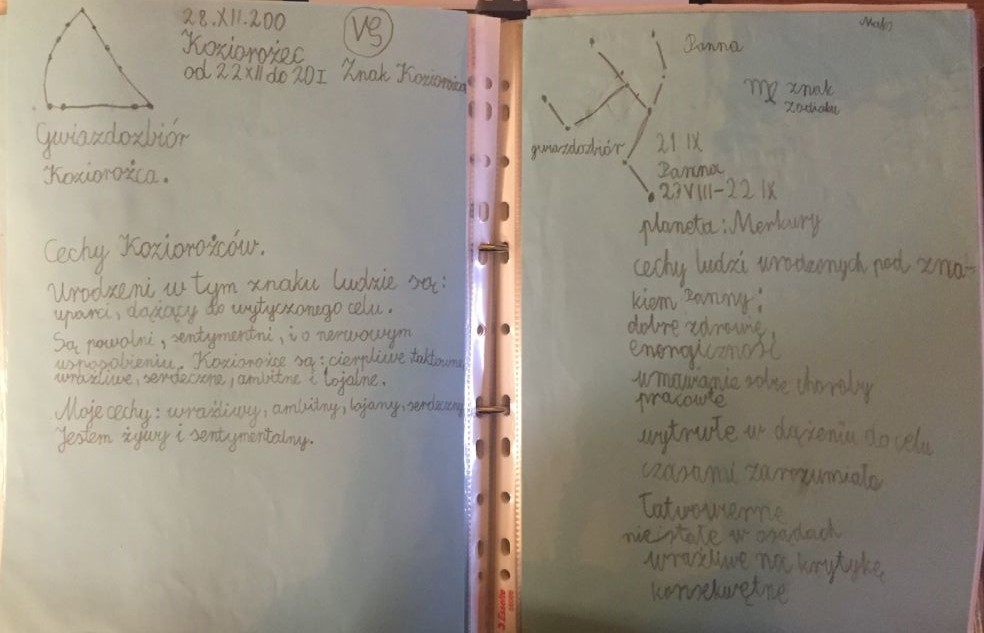 28.XII.200
Koziorożec
od 22XII do 20I Znak Koziorożca
Gwiazdozbiór
Koziorożca.
Cechy Koziorożców.
Urodzeni w tym znaku ludzie są:
uparci, dążący do wytyczonego celu.
Są powolni, sentymentni, i o nerwowym
usposobieniu. Koziorożce są: cierpliwe taktowne,
wrażliwe, serdeczne, ambitne i lojalne.
Moje cechy: wrażliwy, ambitny, lojany, serdeczny
Jestem żywy i sentymentalny.
Panna
♍ znak
zodiaku
gwiazdozbiór
21 IX
Panna
23VIII-22 IX
planeta: Merkury
cechy ludzi urodzonych pod zna-
kiem Panny:
dobre zdrowie,
energiczność
wmawianie sobie choroby
pracowite
wytrwłe w dążeniu do celu
czasami zarozumiałe
łatwowierne
nie stałe w osądach
wrażliwe na krytykę
konsekwętne